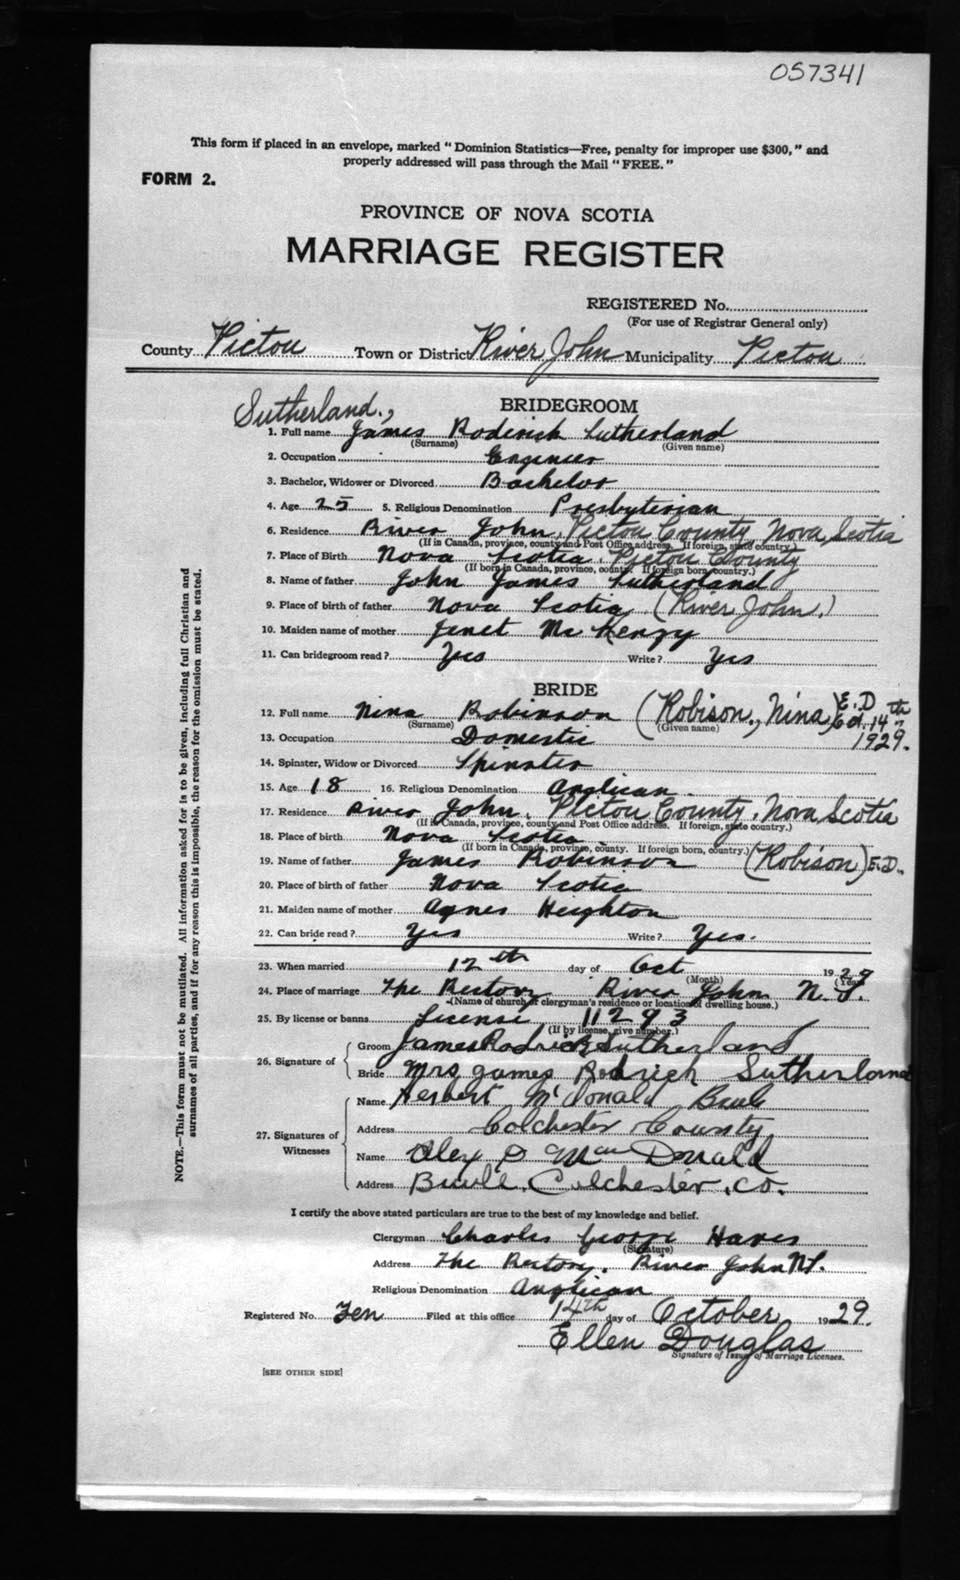 057341
This form if placed in an envelope, marked "Dominion Statistics—Free, penalty for improper use $300," and
properly addressed will pass through the Mail "FREE."
FORM 2.
PROVINCE OF NOVA SCOTIA
MARRIAGE REGISTER
REGISTERED No.
(For use of Registrar General only)
County Pictou Town or District River John Municipality Pictou
BRIDEGROOM
Sutherland.,
1. Full name James Roderick Sutherland
(Surname) (Given name)
2. Occupation Engineer
3. Bachelor, Widower or Divorced Bachelor
4. Age 25 5. Religious Denomination Presbyterian
6. Residence River John, Pictou County, Nova Scotia
(If in Canada, province, county and Post Office address. If foreign, state country.)
7. Place of Birth Nova Scotia. Pictou County
(If born in Canada, province, county. If foreign born, country.)
8. Name of father John James Sutherland
9. Place of birth of father Nova Scotia (River John.)
10. Maiden name of mother Jenet McKenzy
11. Can bridegroom read? Yes Write? Yes
BRIDE
12. Full name Nina Robinson (Robison., Nina) E.D
(Surname) (Given name)
Oct. 14th
1929.
13. Occupation Domestic
14. Spinster, Widow or Divorced Spinster
15. Age 18 16. Religious Denomination Anglican.
17. Residence River John. Pictou County. Nova Scotia
(If in Canada, province, county and Post Office address. If foreign, state country.)
18. Place of birth Nova Scotia
(If born in Canada, province, county. If foreign born, country.)
19. Name of father James Robinson (Robison) E.D.
20. Place of birth of father Nova Scotia
21. Maiden name of mother Agnes Heighton
22. Can bride read? Yes Write? Yes.
23. When married 12th day of Oct 1929
(Month) (Year)
24. Place of marriage The Rectory River John N.S.
(Name of church or clergyman's residence or location of dwelling house.)
25. By license or banns License 11293
(If by license, give number.)
26. Signature of
Groom James Rodrick Sutherland
Bride Mrs James Rodrick Sutherland
27. Signatures of Witnesses
Name Herbert McDonald Brule
Address Colchester County
Name Alex D MacDonald
Address Brule. Colchester. Co.
I certify the above stated particulars are true to the best of my knowledge and belief.
Clergyman Charles George Hares
(Signature)
Address The Rectory. River John N.S.
Religious Denomination Anglican
Registered No. Ten Filed at this office 14th day of October 1929.
Ellen Douglas
Signature of Issuer of Marriage Licenses.
[SEE OTHER SIDE]
NOTE.—This form must not be mutilated. All information asked for is to be given, including full Christian and
surnames of all parties, and if for any reason this is impossible, the reason for the omission must be stated.